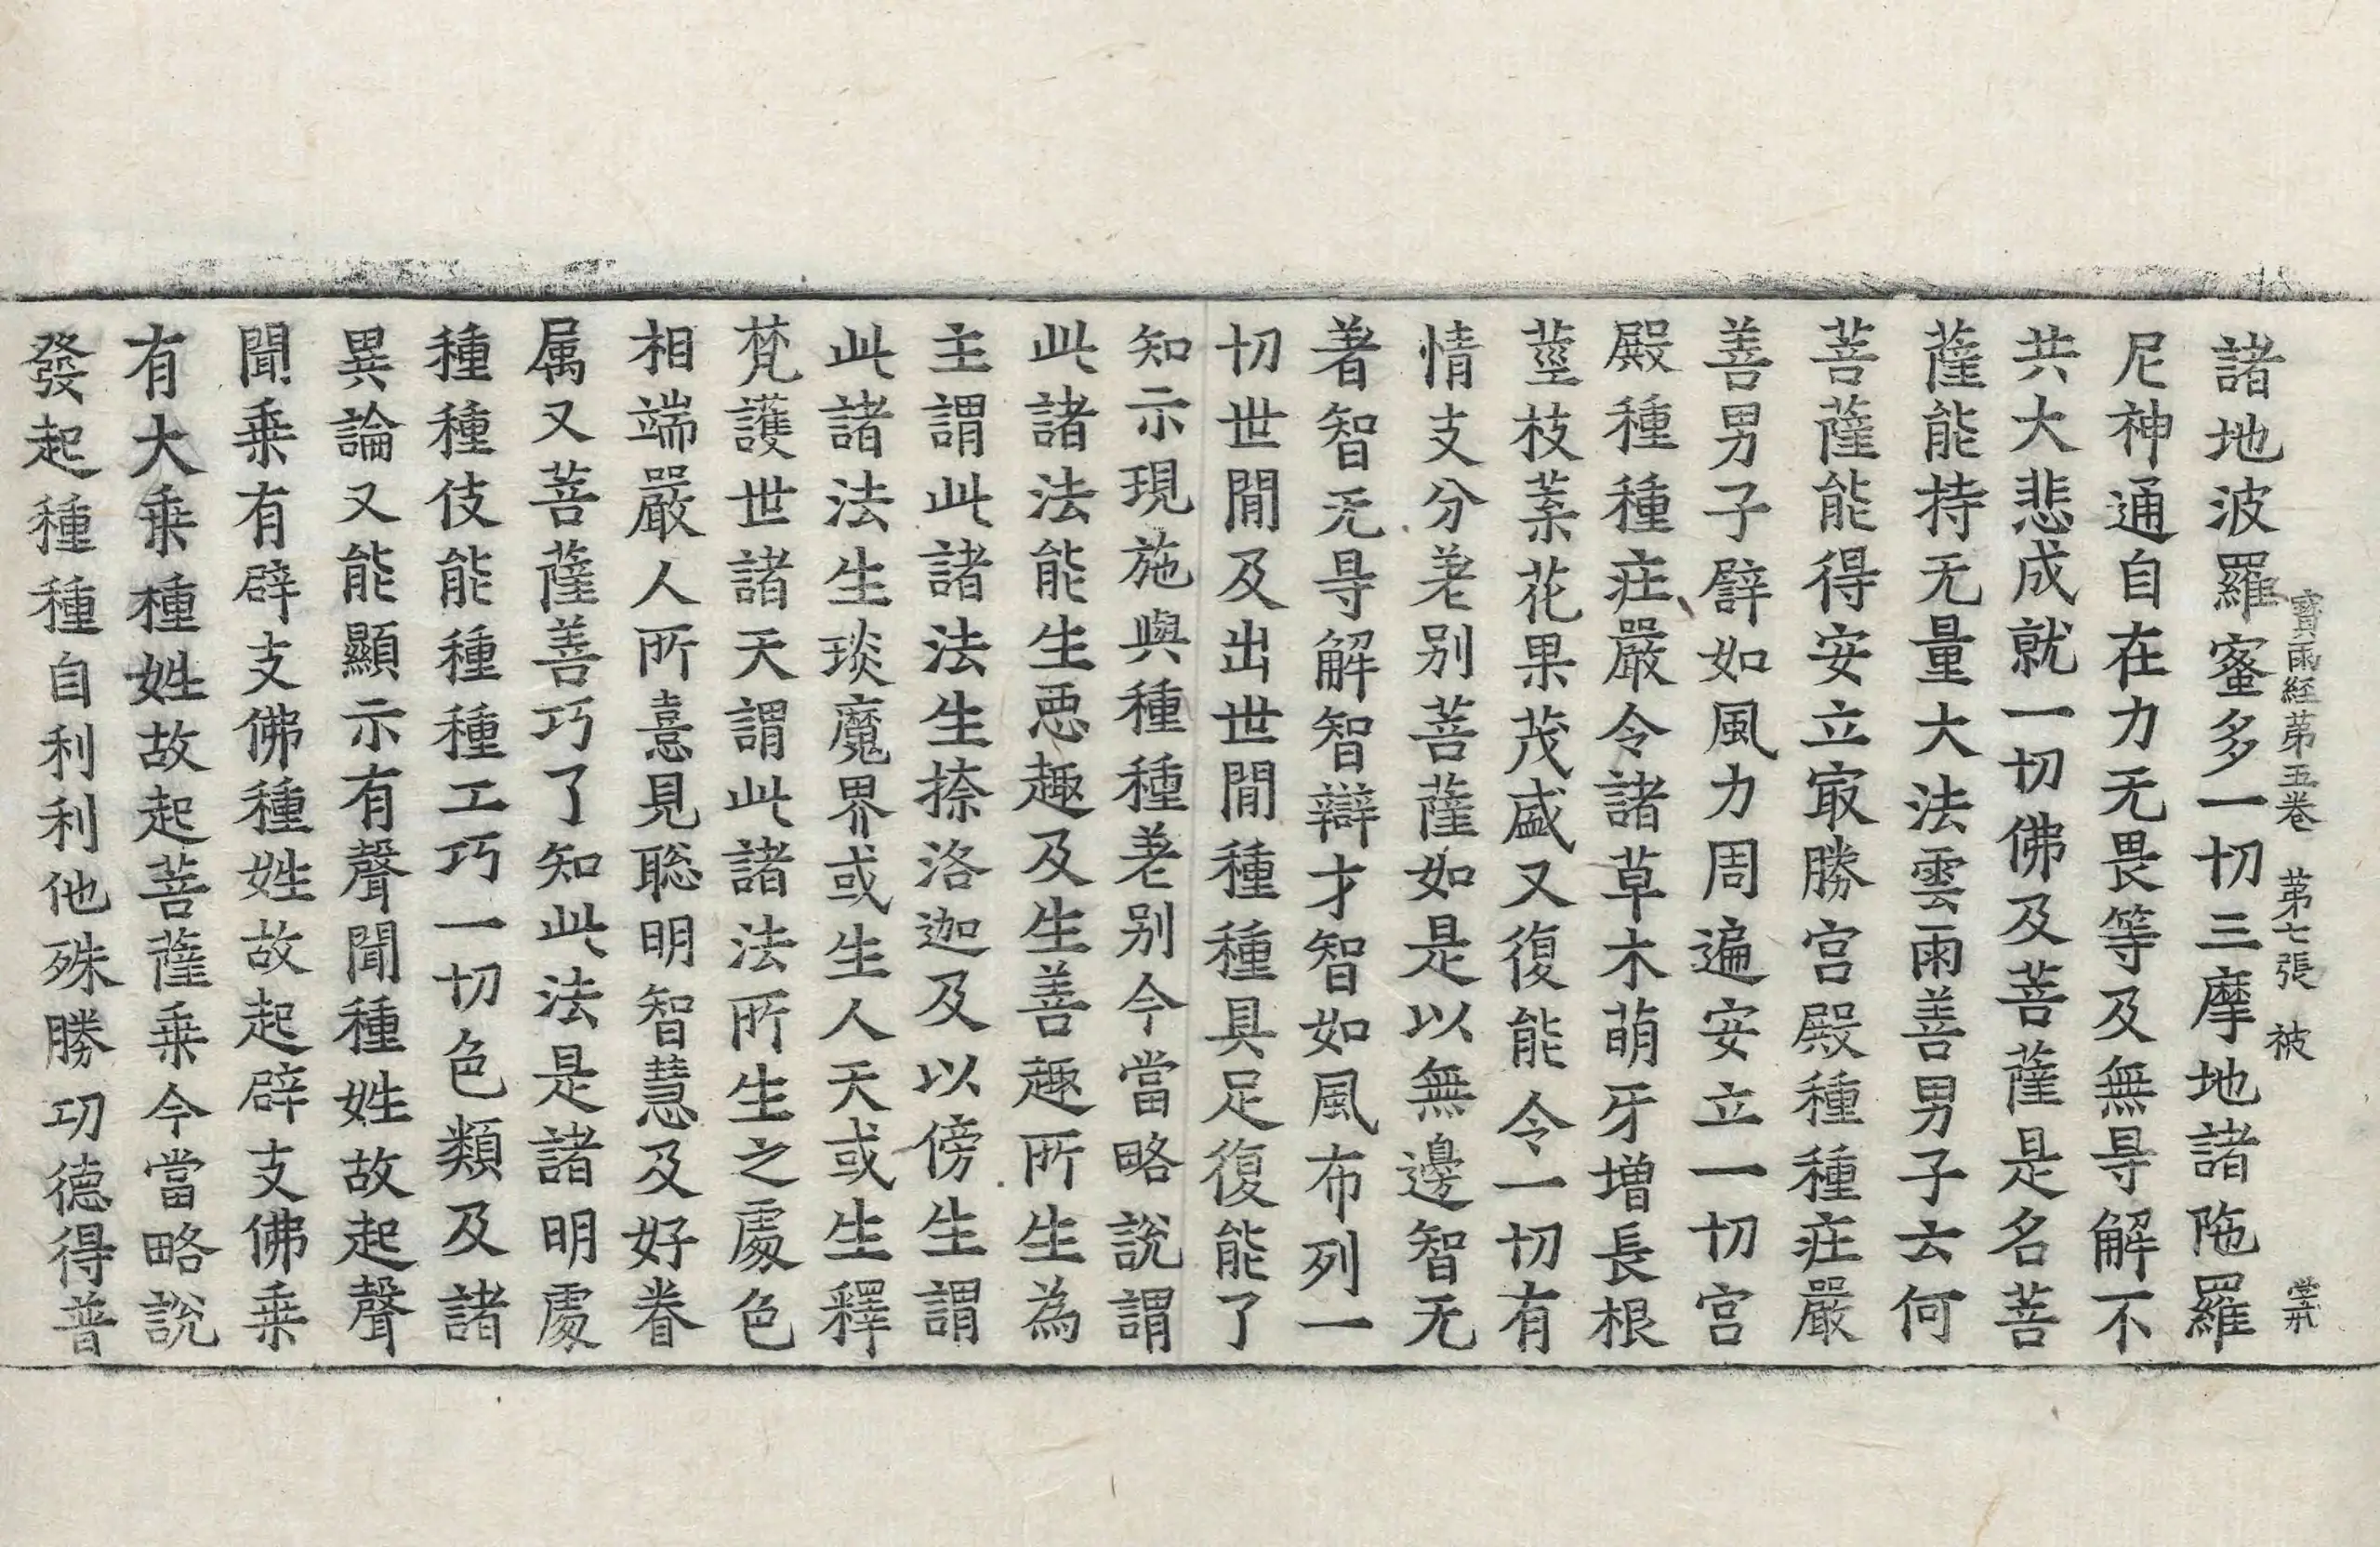 寶雨経苐五卷 苐七張 被
諸地波羅蜜多一切三摩地諸陁羅
尼神通自在力无畏等及無㝵解不
共大悲成就一切佛及菩薩是名菩
薩能持无量大法雲雨善男子云何
菩薩能得安立㝡勝宫殿種種庄嚴
善男子譬如風力周遍安立一切宫
殿種種庄嚴令諸草木萌牙增長根
莖枝葉花果茂盛又復能令一切有
情支分差别菩薩如是以無邊智无
著智无㝵解智辯才智如風布列一
切世間及出世間種種具足復能了
知示現施與種種差别今當略說謂
此諸法能生惡趣及生善趣所生為
主謂此諸法生捺洛迦及以傍生謂
此諸法生琰魔界或生人天或生釋
梵護世諸天謂此諸法所生之處色
相端嚴人所憙見聡明智慧及好眷
属又菩薩善巧了知此法是諸明處
種種伎能種種工巧一切色類及諸
異論又能顯示有聲聞種姓故起聲
聞乗有辟支佛種姓故起辟支佛乗
有大乗種姓故起菩薩乗今當略說
發起種種自利利他殊勝功德得普